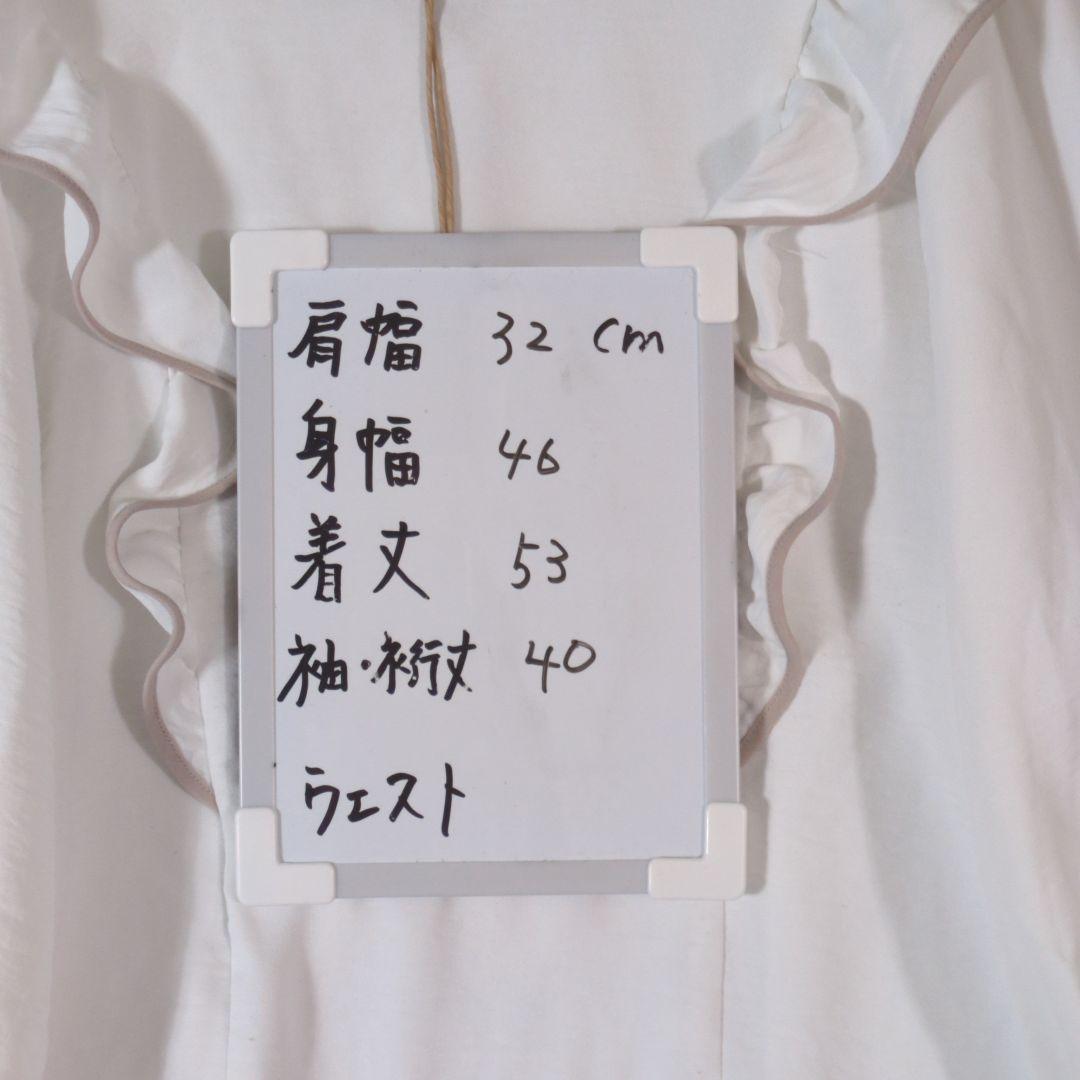 肩幅 32 cm
身幅 46
着丈 53
袖・裄丈 40
ウエスト